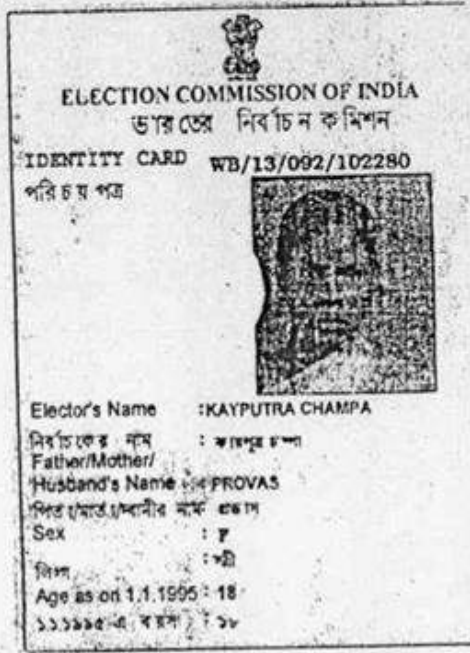 ELECTION COMMISSION OF INDIA
ভারতের নির্বাচন কমিশন
IDENTITY CARD WB/13/092/102280
পরিচয় পত্র
Elector's Name : KAYPUTRA CHAMPA
নির্বাচকের নাম : কায়পুত্র চম্পা
Father/Mother/
Husband's Name PROVAS
পিতা/মাতা/স্বামীর নাম প্রভাস
Sex : F
লিঙ্গ : স্ত্রী
Age as on 1.1.1995 : 18
১.১.১৯৯৫ এ বয়স : ১৮